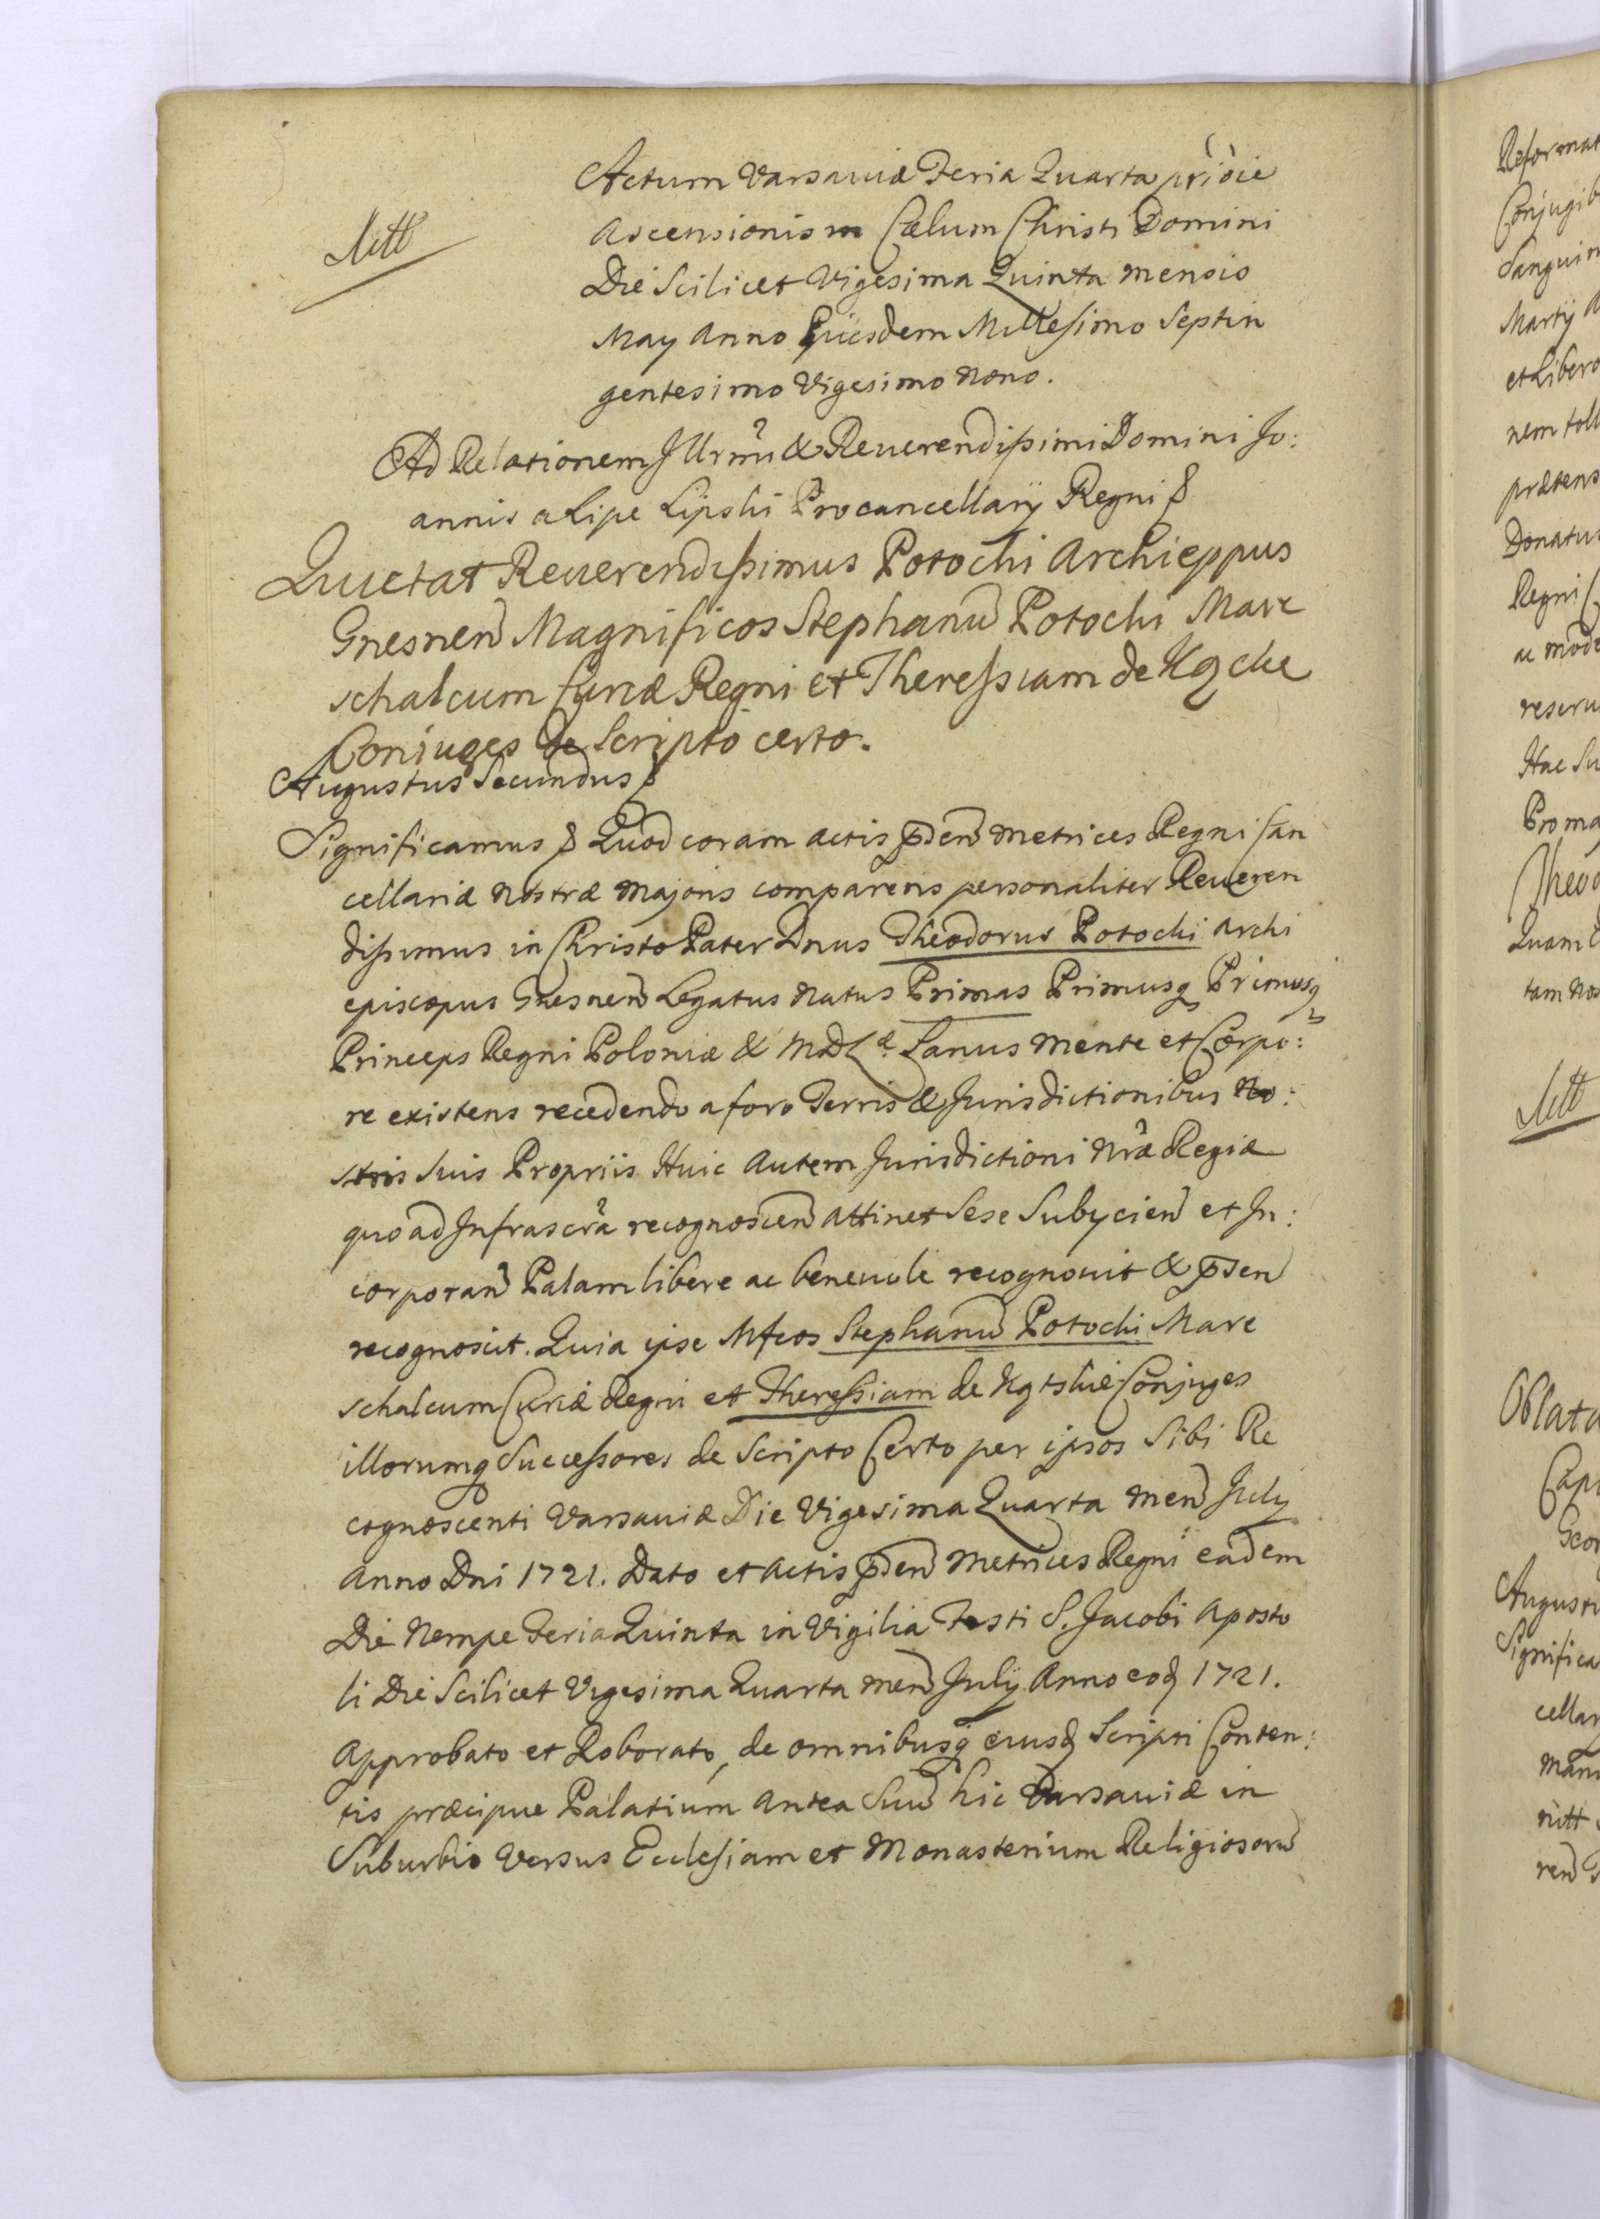 Actum Varsaviæ Feria Quarta pridie
Mtt
Ascensionis in Cælum Christi Domini
Die Scilicet Vigesima Quinta mensis
May Anno Ejusdem Millesimo Septin
gentesimo Vigesimo Nono.
Ad Relationem Illrmi & Reverendissimi Domini Jo:
annis a Lipe Lipski Procancellarÿ Regni
Quietat Reverendissimus Potocki Archieppus
Gnesnen Magnificos Stephanu Potocki Mare
schalcum Curiæ Regni et Theressiam de
Coniuges de Scripto certo.
Augustus Secundus
Significamus Quod coram actis pden Metrices Regni Can
cellariæ Nostræ Majoris comparens personaliter Reveren
dissimus in Christo Pater Dnus Theodorus Potocki Archi
episcopus Gnesnen Legatus Natus Primas Primusq
Princeps Regni Poloniæ & MDL Sanus Mente et Corpo:
re existens recedendo a foro Terris & Jurisdictionibus No:
stris Suis Propriis Huic Autem Jurisdictioni Nræ Regiæ
quo ad Infrascra recognoscen Attinet Sese Subycien et In:
corporan Palam libere ac benevole recognovit & pden
recognoscit. Quia ipse Mfcos Stephanu Potocki Mare
schalcum Curiæ Regni et Theressiam de Conjuges
illorumq Successores de Scripto Certo per ipsos Sibi Re
cognoscenti Varsaviæ Die Vigesima Quarta Men July
Anno Dni 1721. Dato et Actis pden Metrices Regni eadem
Die Nempe Feria Quinta in Vigilia Festi S. Jacobi Aposto
li Die Scilicet Vigesima Quarta Men July Anno eod 1721.
Approbato et Roborato, de omnibusq eiusd Scripti Conten:
tis præcipue Palatium Antea Suu hic Varsaviæ in
Suburbio Versus Ecclesiam et Monasterium Religiosoru
Reformat
Conjugib
Sanguin
Martÿ
et Libero
nem toll
prætens
Donatus
Regni
ac mode
reserv
Hac Su
Proma
Theo
Quam
tam Nos
Mtt
Oblata
Capi
Geor
Augusti
Significa
cellar
Man
ritt
ren